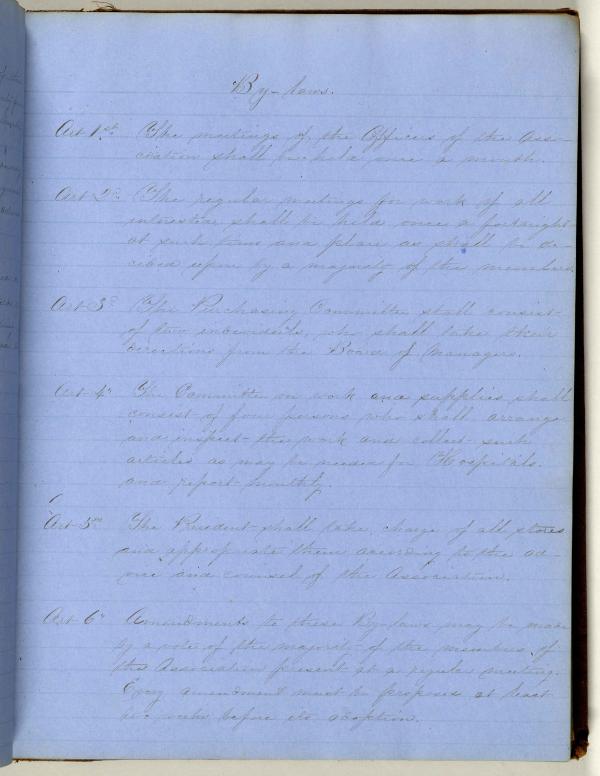 By-laws.
Art 1st. The meetings of the Officers of the Asso-
ciation shall be held once a month.
Art 2d. The regular meetings for work of all
interested shall be held once a fortnight
at such time and place as shall be de-
cided upon by a majority of the members.
Art 3d. The Purchasing Committee shall consist
of two individuals, who shall take their
directions from the Board of Managers.
Art 4th. The Committee on work and supplies shall
consist of four persons who shall arrange
and inspect the work and collect such
articles as may be needed for Hospitals.
and report monthly.
Art 5th. The President shall take charge of all stores
and appropriate them according to the ad-
vice and counsel of the Association.
Art 6th Amendments to these By-laws may be made
by a vote of the majority of the members of
the Association present at a regular meeting.
Every amendment must be proposed at least
weeks before its adoption.